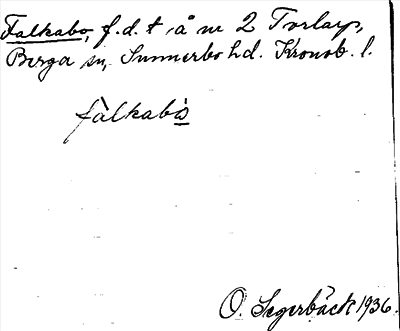 Falkabo, f.d. t å nr 2 Torlarp,
Berga sn, Sunnerbo hd. Kronob. l.
fàlkabós
O. Segerbäck 1936.